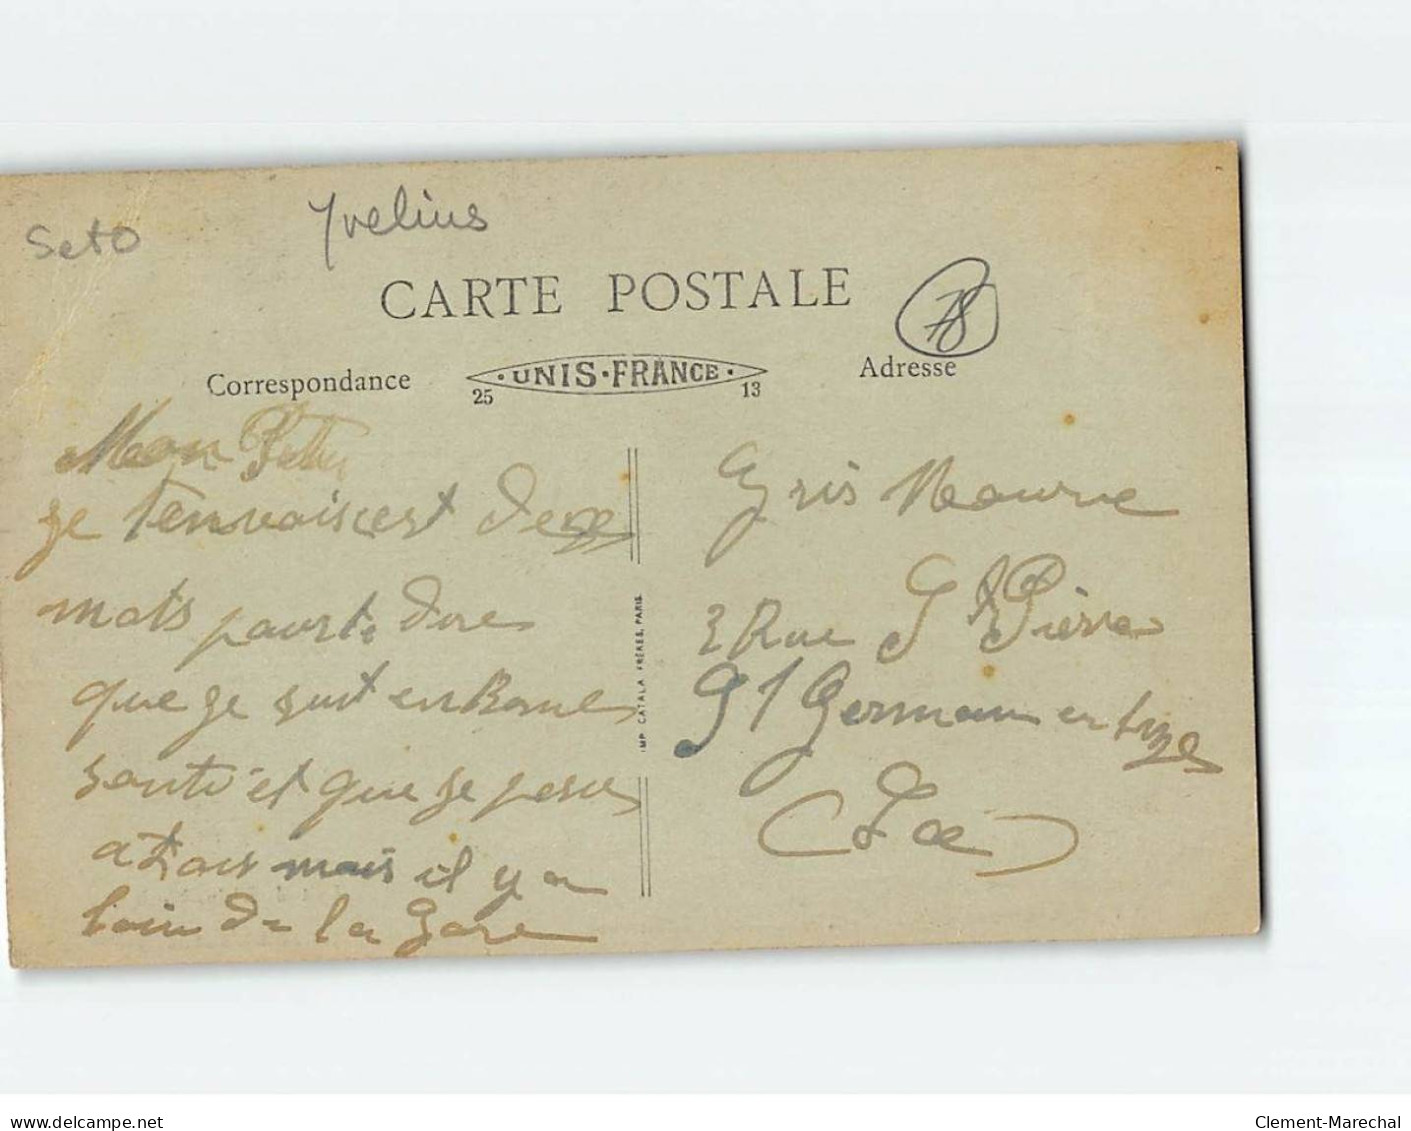 Seto
Yvelius
CARTE POSTALE
78
Correspondance
UNIS•FRANCE
25 13
Adresse
Mon
je t'envois cest deux
mots pourte dire
que je suit en Bone
santé et que je pense
a toi mais il y a
loin de la Gare
IMP. CATALA FRÈRES, PARIS.
Gris Maurice
2 Rue St Pierre
St Germain en Laye
www.delcampe.net
Clement-Marechal